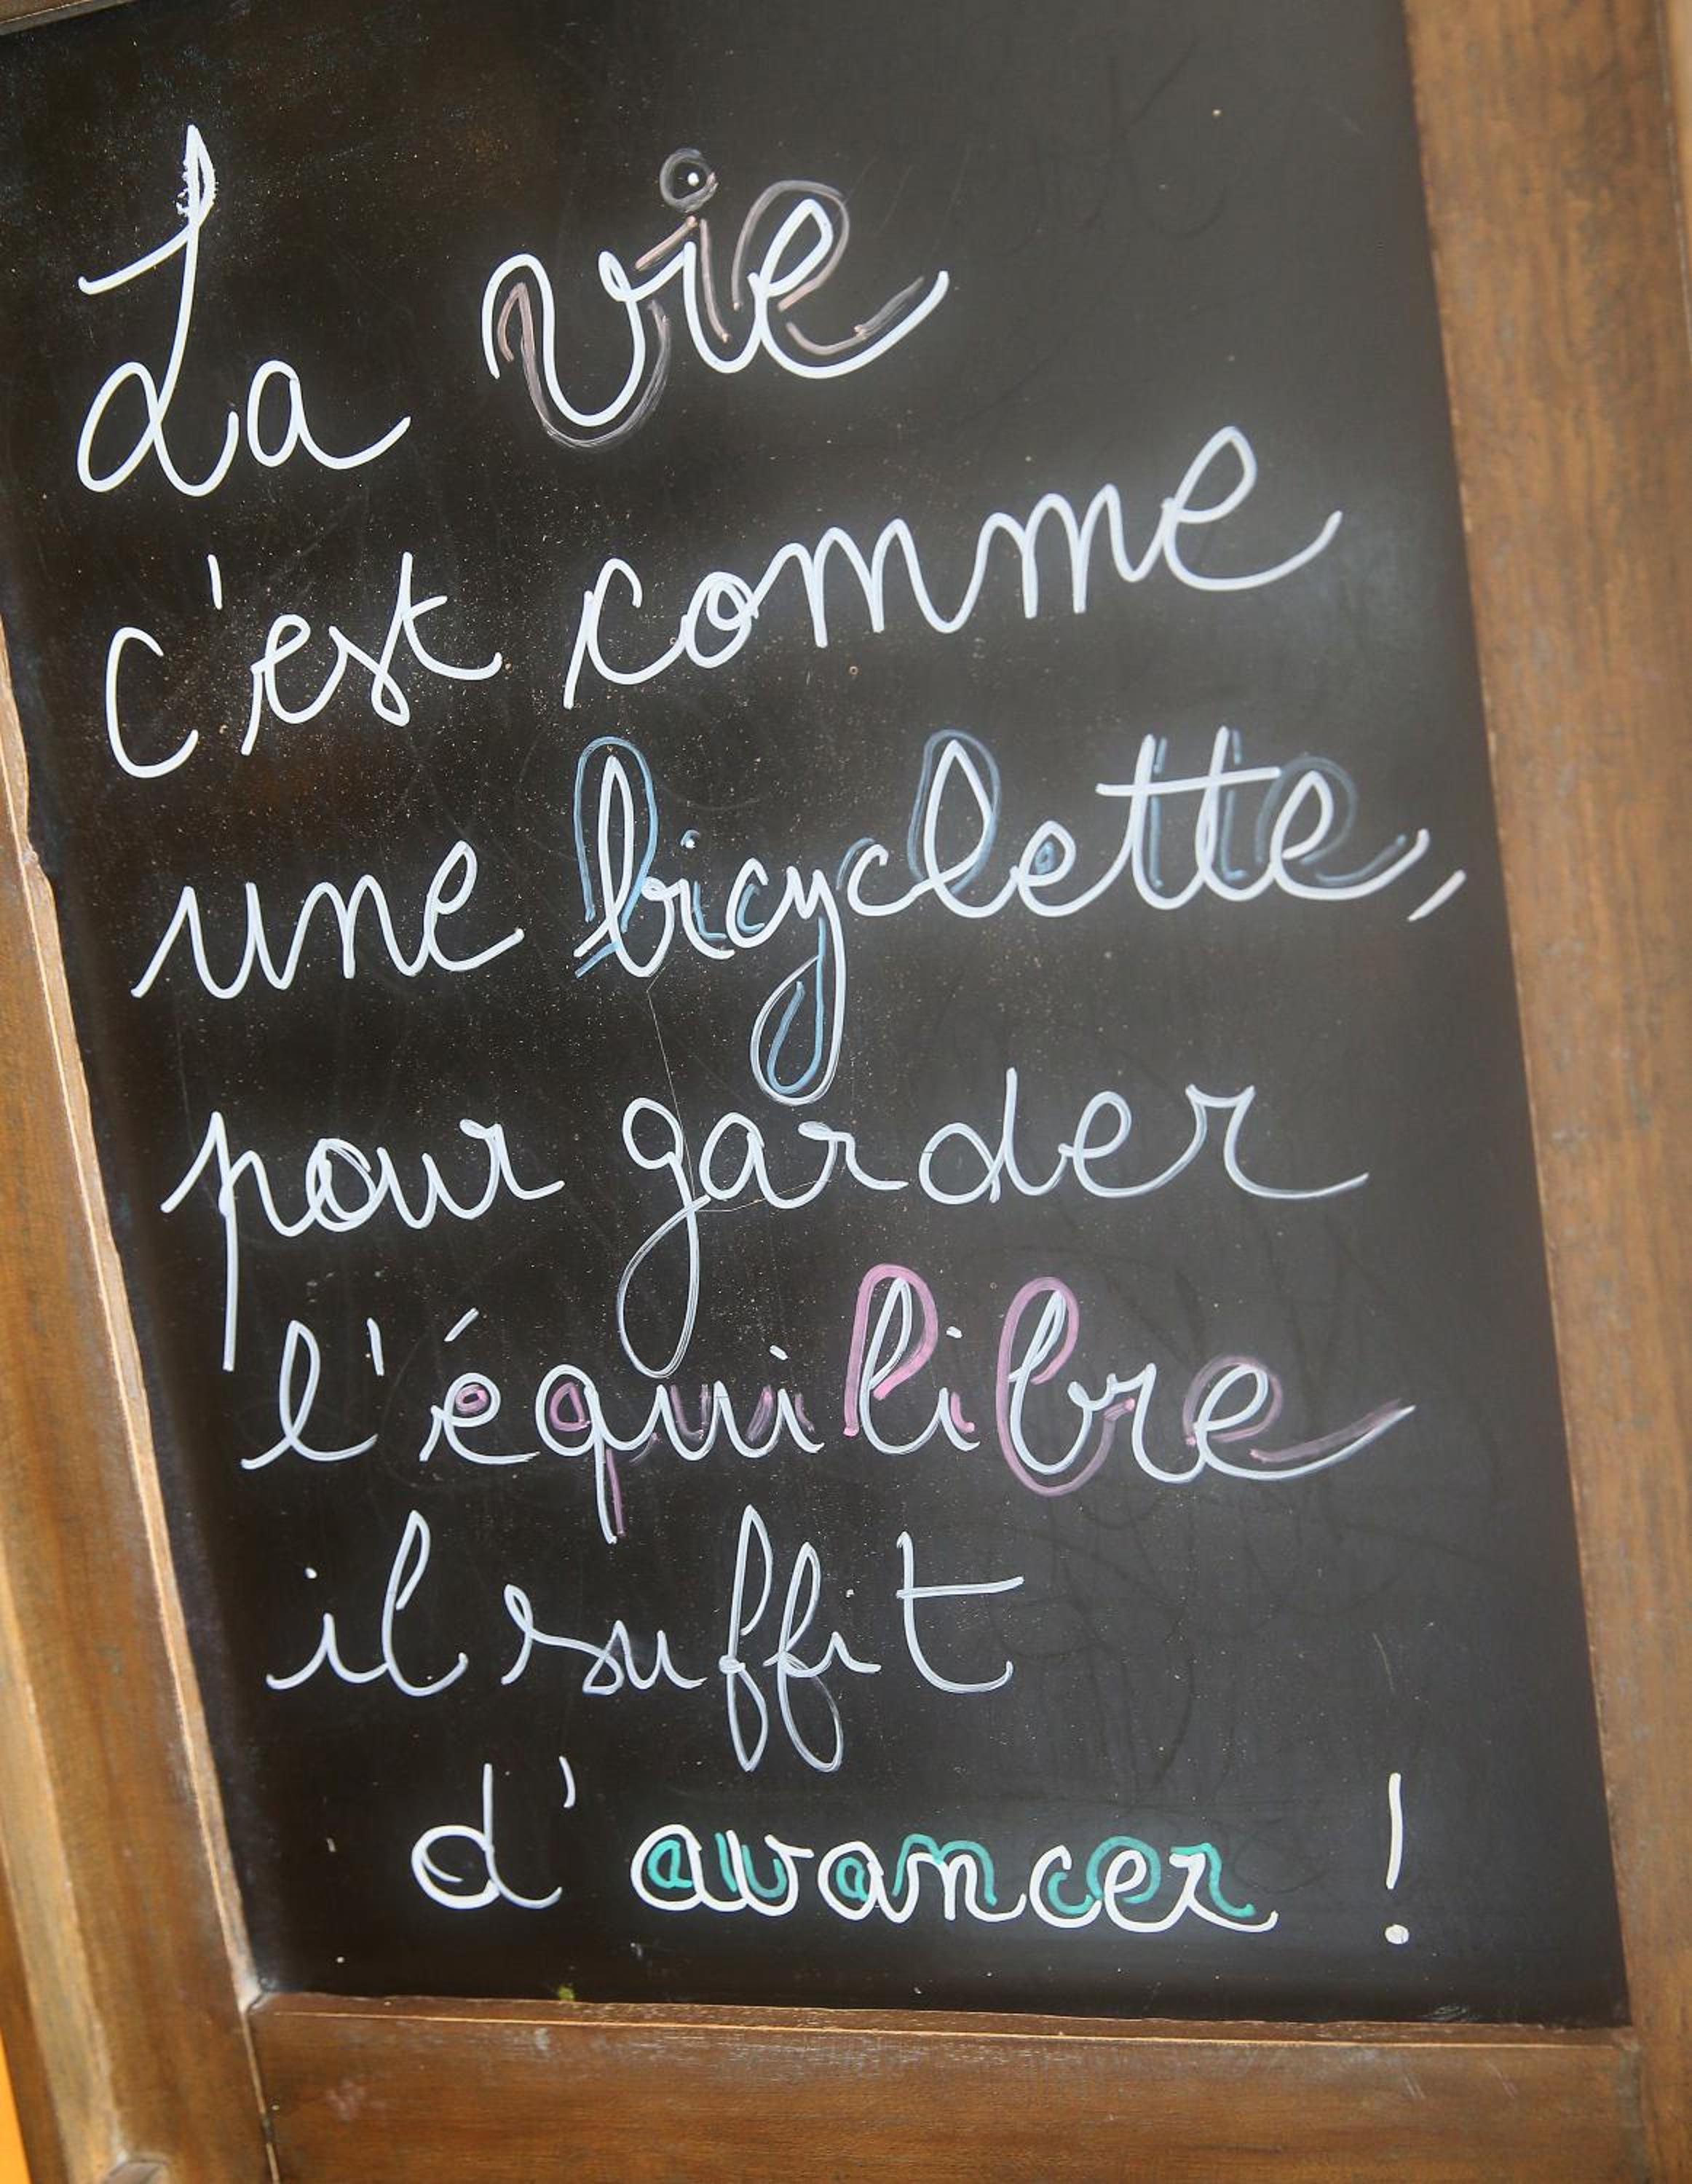 La vie
c'est comme
une bicyclette,
pour garder
l'équilibre
il suffit
d'avancer !